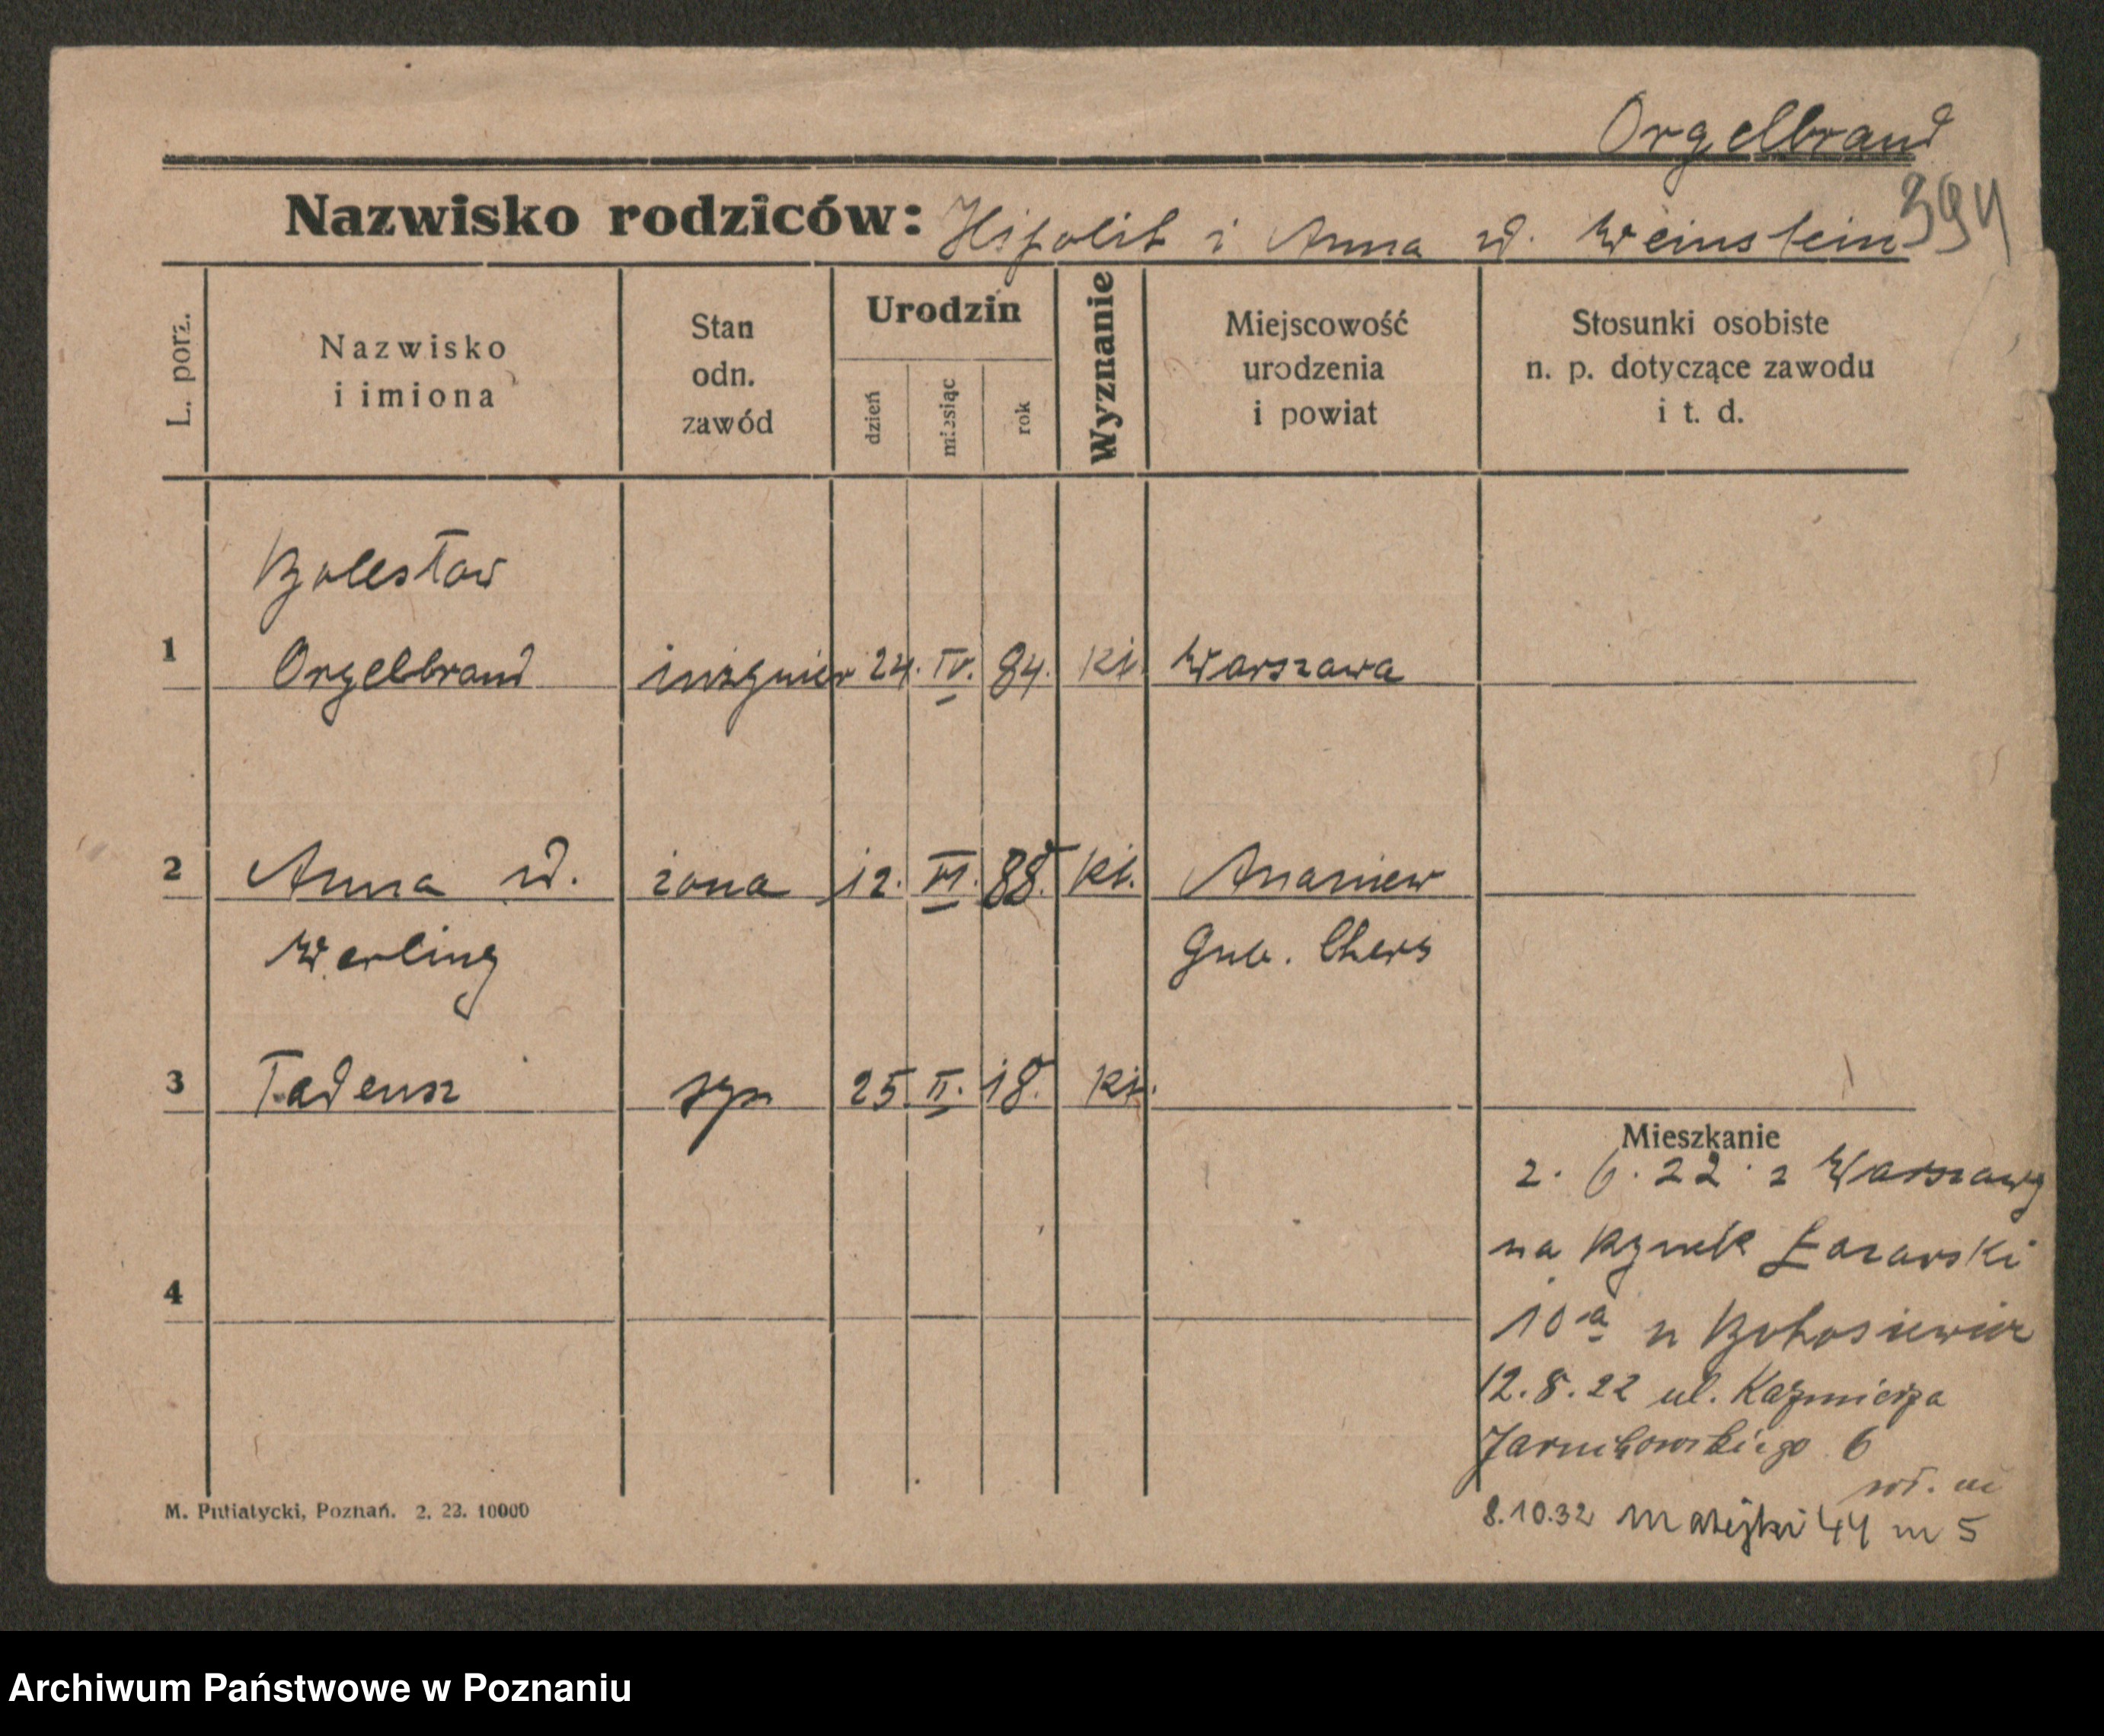 Orgelbrand
394
Nazwisko rodziców: Hipolit i Anna ur. Weinstein
L. porz.
Nazwisko
i imiona
Stan
odn.
zawód
Urodzin
dzień
miesiąc
rok
Wyznanie
Miejscowość
urodzenia
i powiat
Stosunki osobiste
n. p. dotyczące zawodu
i t. d.
Bolesław
1 Orgelbrand inżynier 24. IV. 84. kt. Warszawa
2 Anna ur. żona 12. VI. 88. kt. Ananiew
Werling Gub. Chers
3 Tadeusz syn 25. II. 18. kt.
Mieszkanie
2. 6. 22 z Warszawy
na Rynek Łazarski
4
10a u Bohosiewicz
12.8.22 ul. Kazmierza
Jarochowskiego 6
8.10.32 Matejki 44 m 5
M. Putiatycki, Poznań. 2. 23. 10000
Archiwum Państwowe w Poznaniu